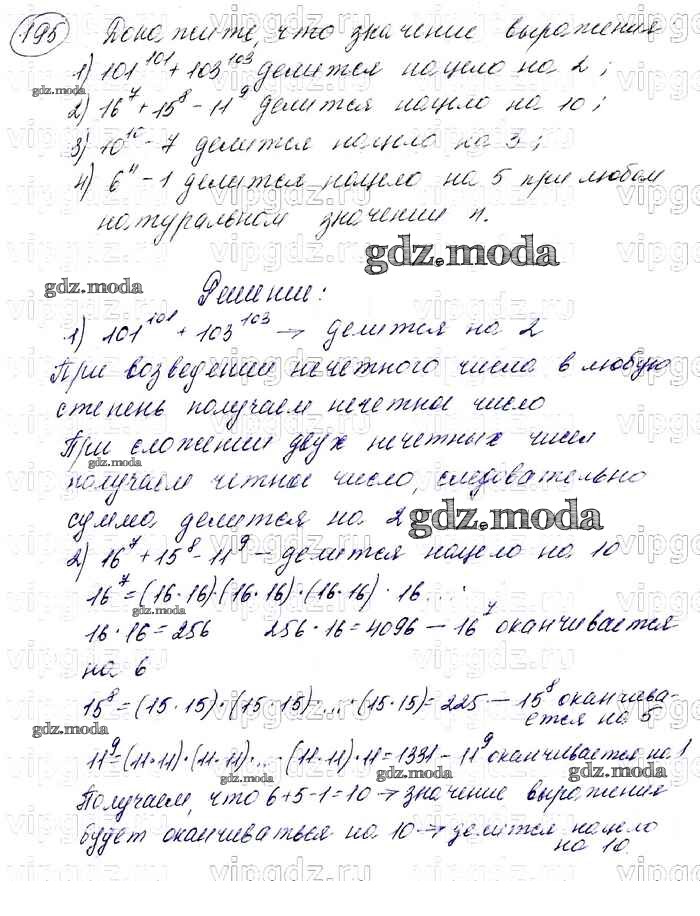 195 Докажите, что значение выражения
1) 101^101 + 103^103 делится нацело на 2;
gdz.moda
2) 16^7 + 15^8 - 11^9 делится нацело на 10;
3) 10^10 - 7 делится нацело на 3;
4) 6^n - 1 делится нацело на 5 при любом
натуральном значении n.
gdz.moda
gdz.moda
Решение:
1) 101^101 + 103^103 → делится на 2
При возведении нечетного числа в любую
степень получаем нечетное число
При сложении двух нечетных чисел
gdz.moda
получаем четное число, следовательно
сумма делится на 2
gdz.moda
2) 16^7 + 15^8 - 11^9 – делится нацело на 10
16^7 = (16·16)·(16·16)·(16·16)·16...
gdz.moda
16·16=256 256·16=4096 – 16^7 оканчивается
на 6
15^8 = (15·15)·(15·15)·...·(15·15)=225 – 15^8 оканчива-
ется на 5
gdz.moda
11^9 = (11·11)·(11·11)·...·(11·11)·11=1331 – 11^9 оканчивается на 1
gdz.moda
gdz.moda
Получаем, что 6+5-1=10 → значение выражения
будет оканчиваться на 10 → делится нацело
на 10.